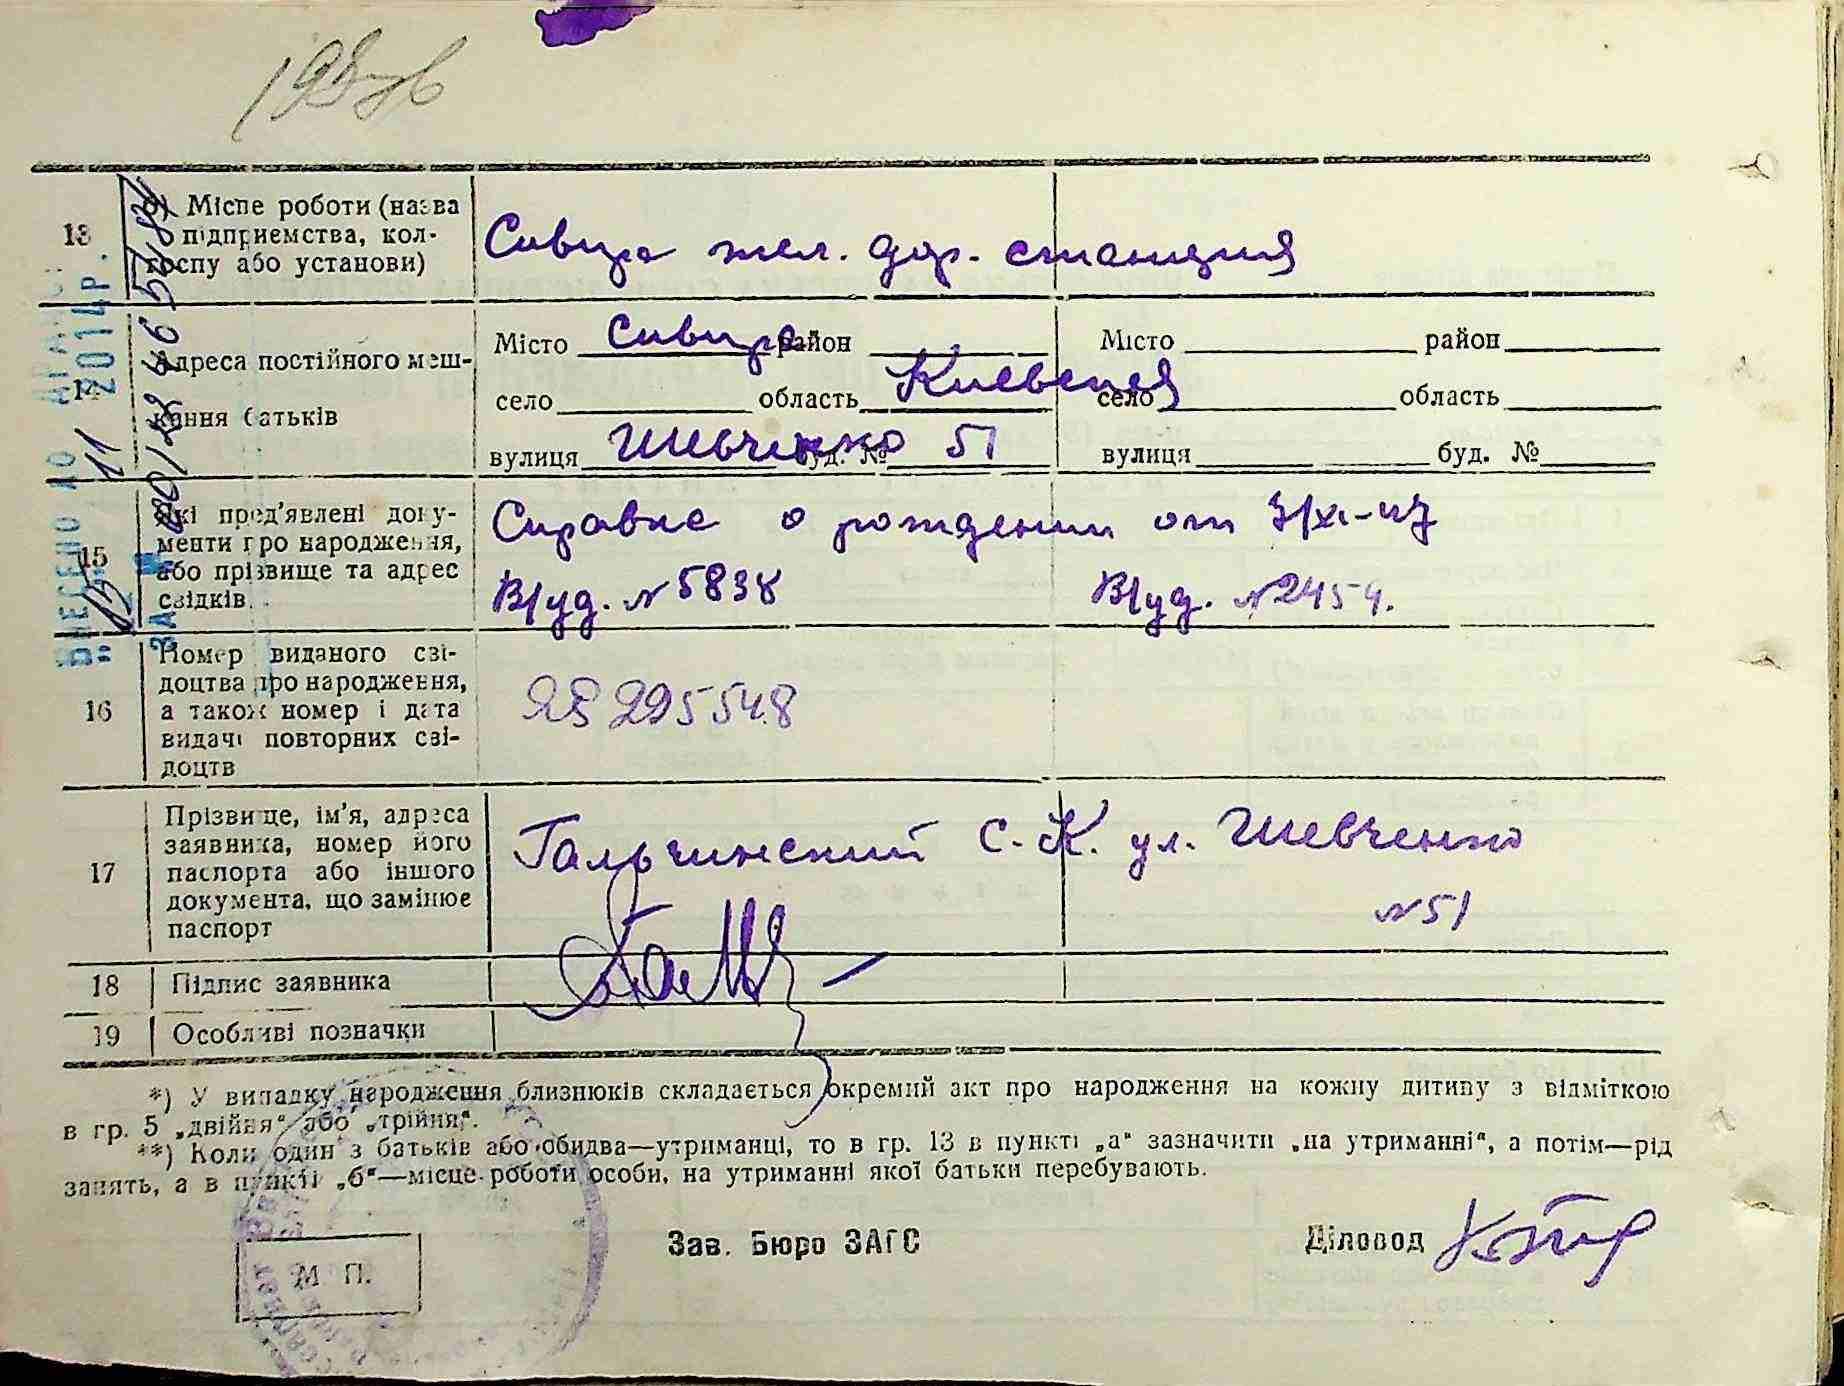 13
б) Місце роботи (назва
підприємства, кол-
госпу або установи)
жел. дор. станция
14
Адреса постійного меш-
кання батьків
Місто район
село область Киевская
вулиця Шевченко буд. № 51
Місто район
село область
вулиця буд. №
15
Які пред'явлені доку-
менти про народження,
або прізвище та адрес
свідків.
Справка о рождении от
В/уд. № 5838
В/уд. № 2454.
16
Номер виданого сві-
доцтва про народження,
а також номер і дата
видачі повторних сві-
доцтв
295548
17
Прізвище, ім'я, адреса
заявника, номер його
паспорта або іншого
документа, що замінює
паспорт
Гальчинский С. К. ул. Шевченко
№ 51
18
Підпис заявника
19
Особливі позначки
*) У випадку народження близнюків складається окремий акт про народження на кожну дитину з відміткою
в гр. 5 „двійня“ або „трійня“.
**) Коли один з батьків або обидва—утриманці, то в гр. 13 в пункті „а“ зазначити „на утриманні“, а потім—рід
занять, а в пункті „б“—місце роботи особи, на утриманні якої батьки перебувають.
М П.
Зав. Бюро ЗАГС
Діловод
ВНЕСЕНО ДО
11 2014 Р.